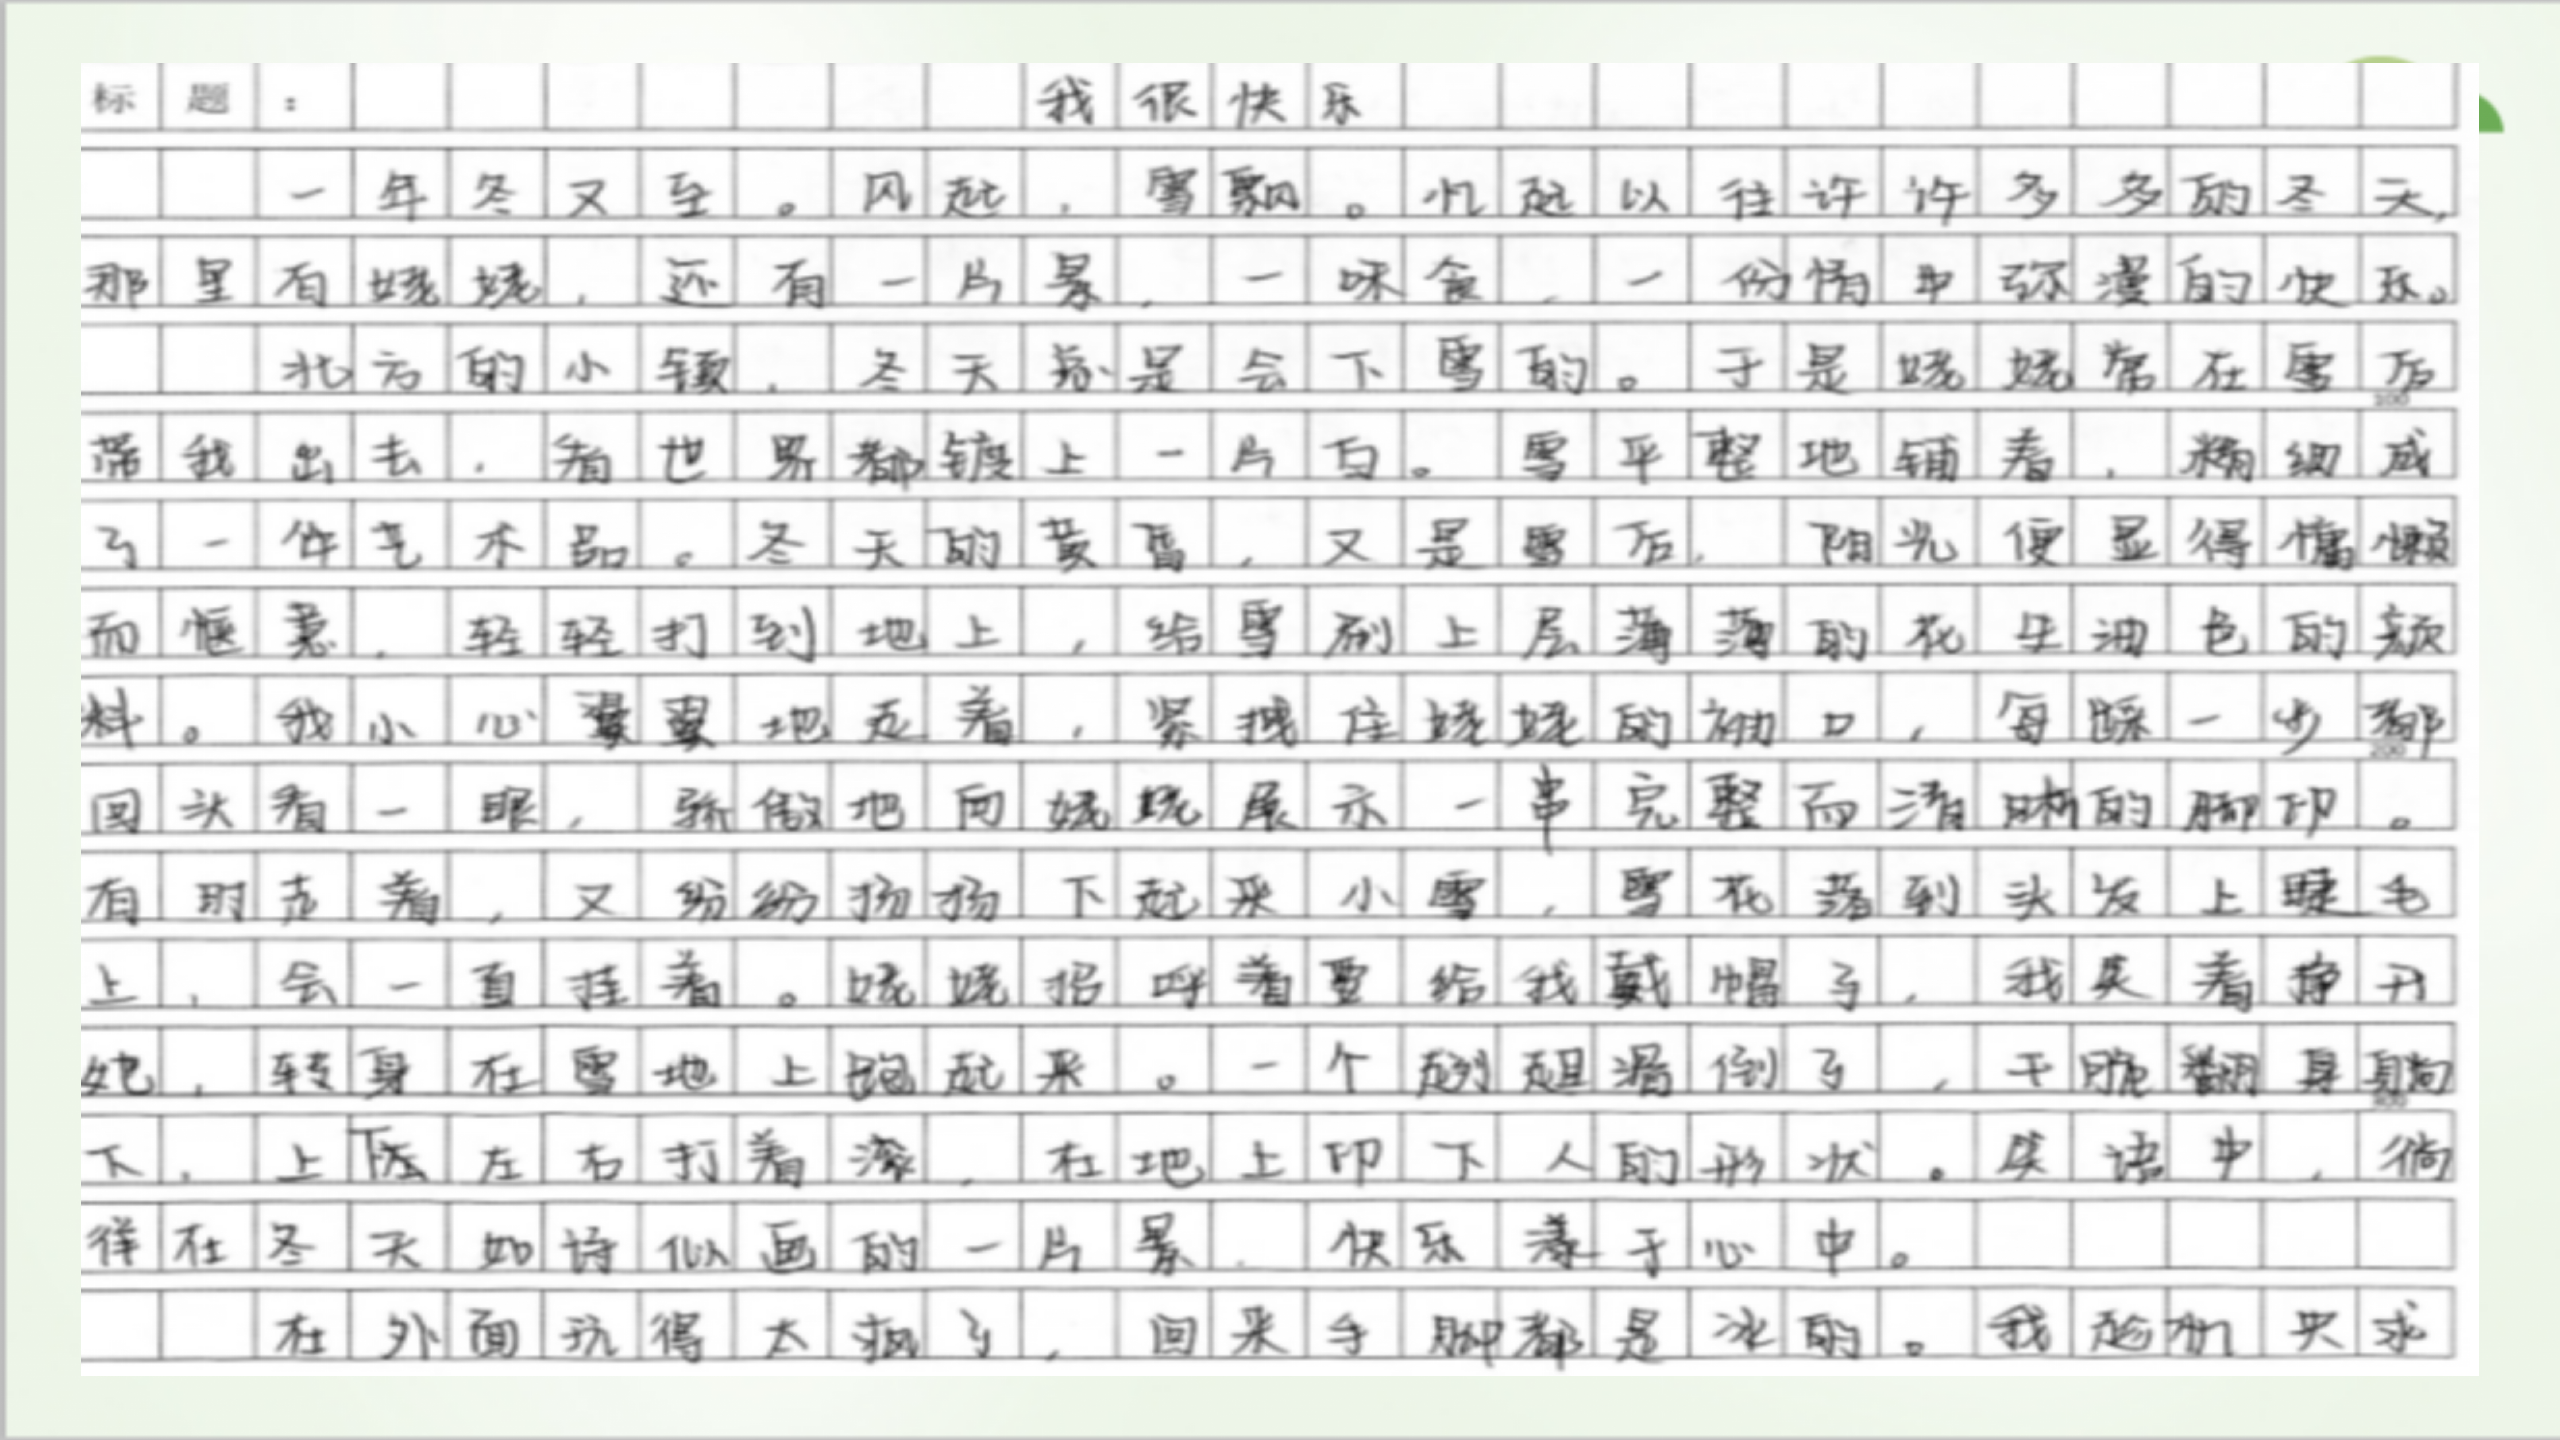 标题： 我很快乐
一年冬又至。风起，雪飘。忆起以往许许多多的冬天，
那里有姥姥，还有一片景，一味食，一份情中弥漫的快乐。
北方的小镇，冬天总是会下雪的。于是姥姥常在雪后
100
带我出去，看世界都镀上一片白。雪平整地铺着，精细成
了一件艺术品。冬天的黄昏，又是雪后，阳光便显得慵懒
而惬意，轻轻打到地上，给雪刷上层薄薄的花生油色的颜
料。我小心翼翼地走着，紧拽住姥姥的袖口，每踩一步都
200
回头看一眼，骄傲地向姥姥展示一串完整而清晰的脚印。
有时走着，又纷纷扬扬下起来小雪，雪花落到头发上睫毛
上，会一直挂着。姥姥招呼着要给我戴帽子，我笑着挣开
她，转身在雪地上跑起来。一个趔趄滑倒了，干脆翻身躺
300
下，上下左右打着滚，在地上印下人的形状。笑语中，徜
徉在冬天如诗似画的一片景，快乐漾于心中。
在外面玩得太疯了，回来手脚都是冰的。我趁机央求